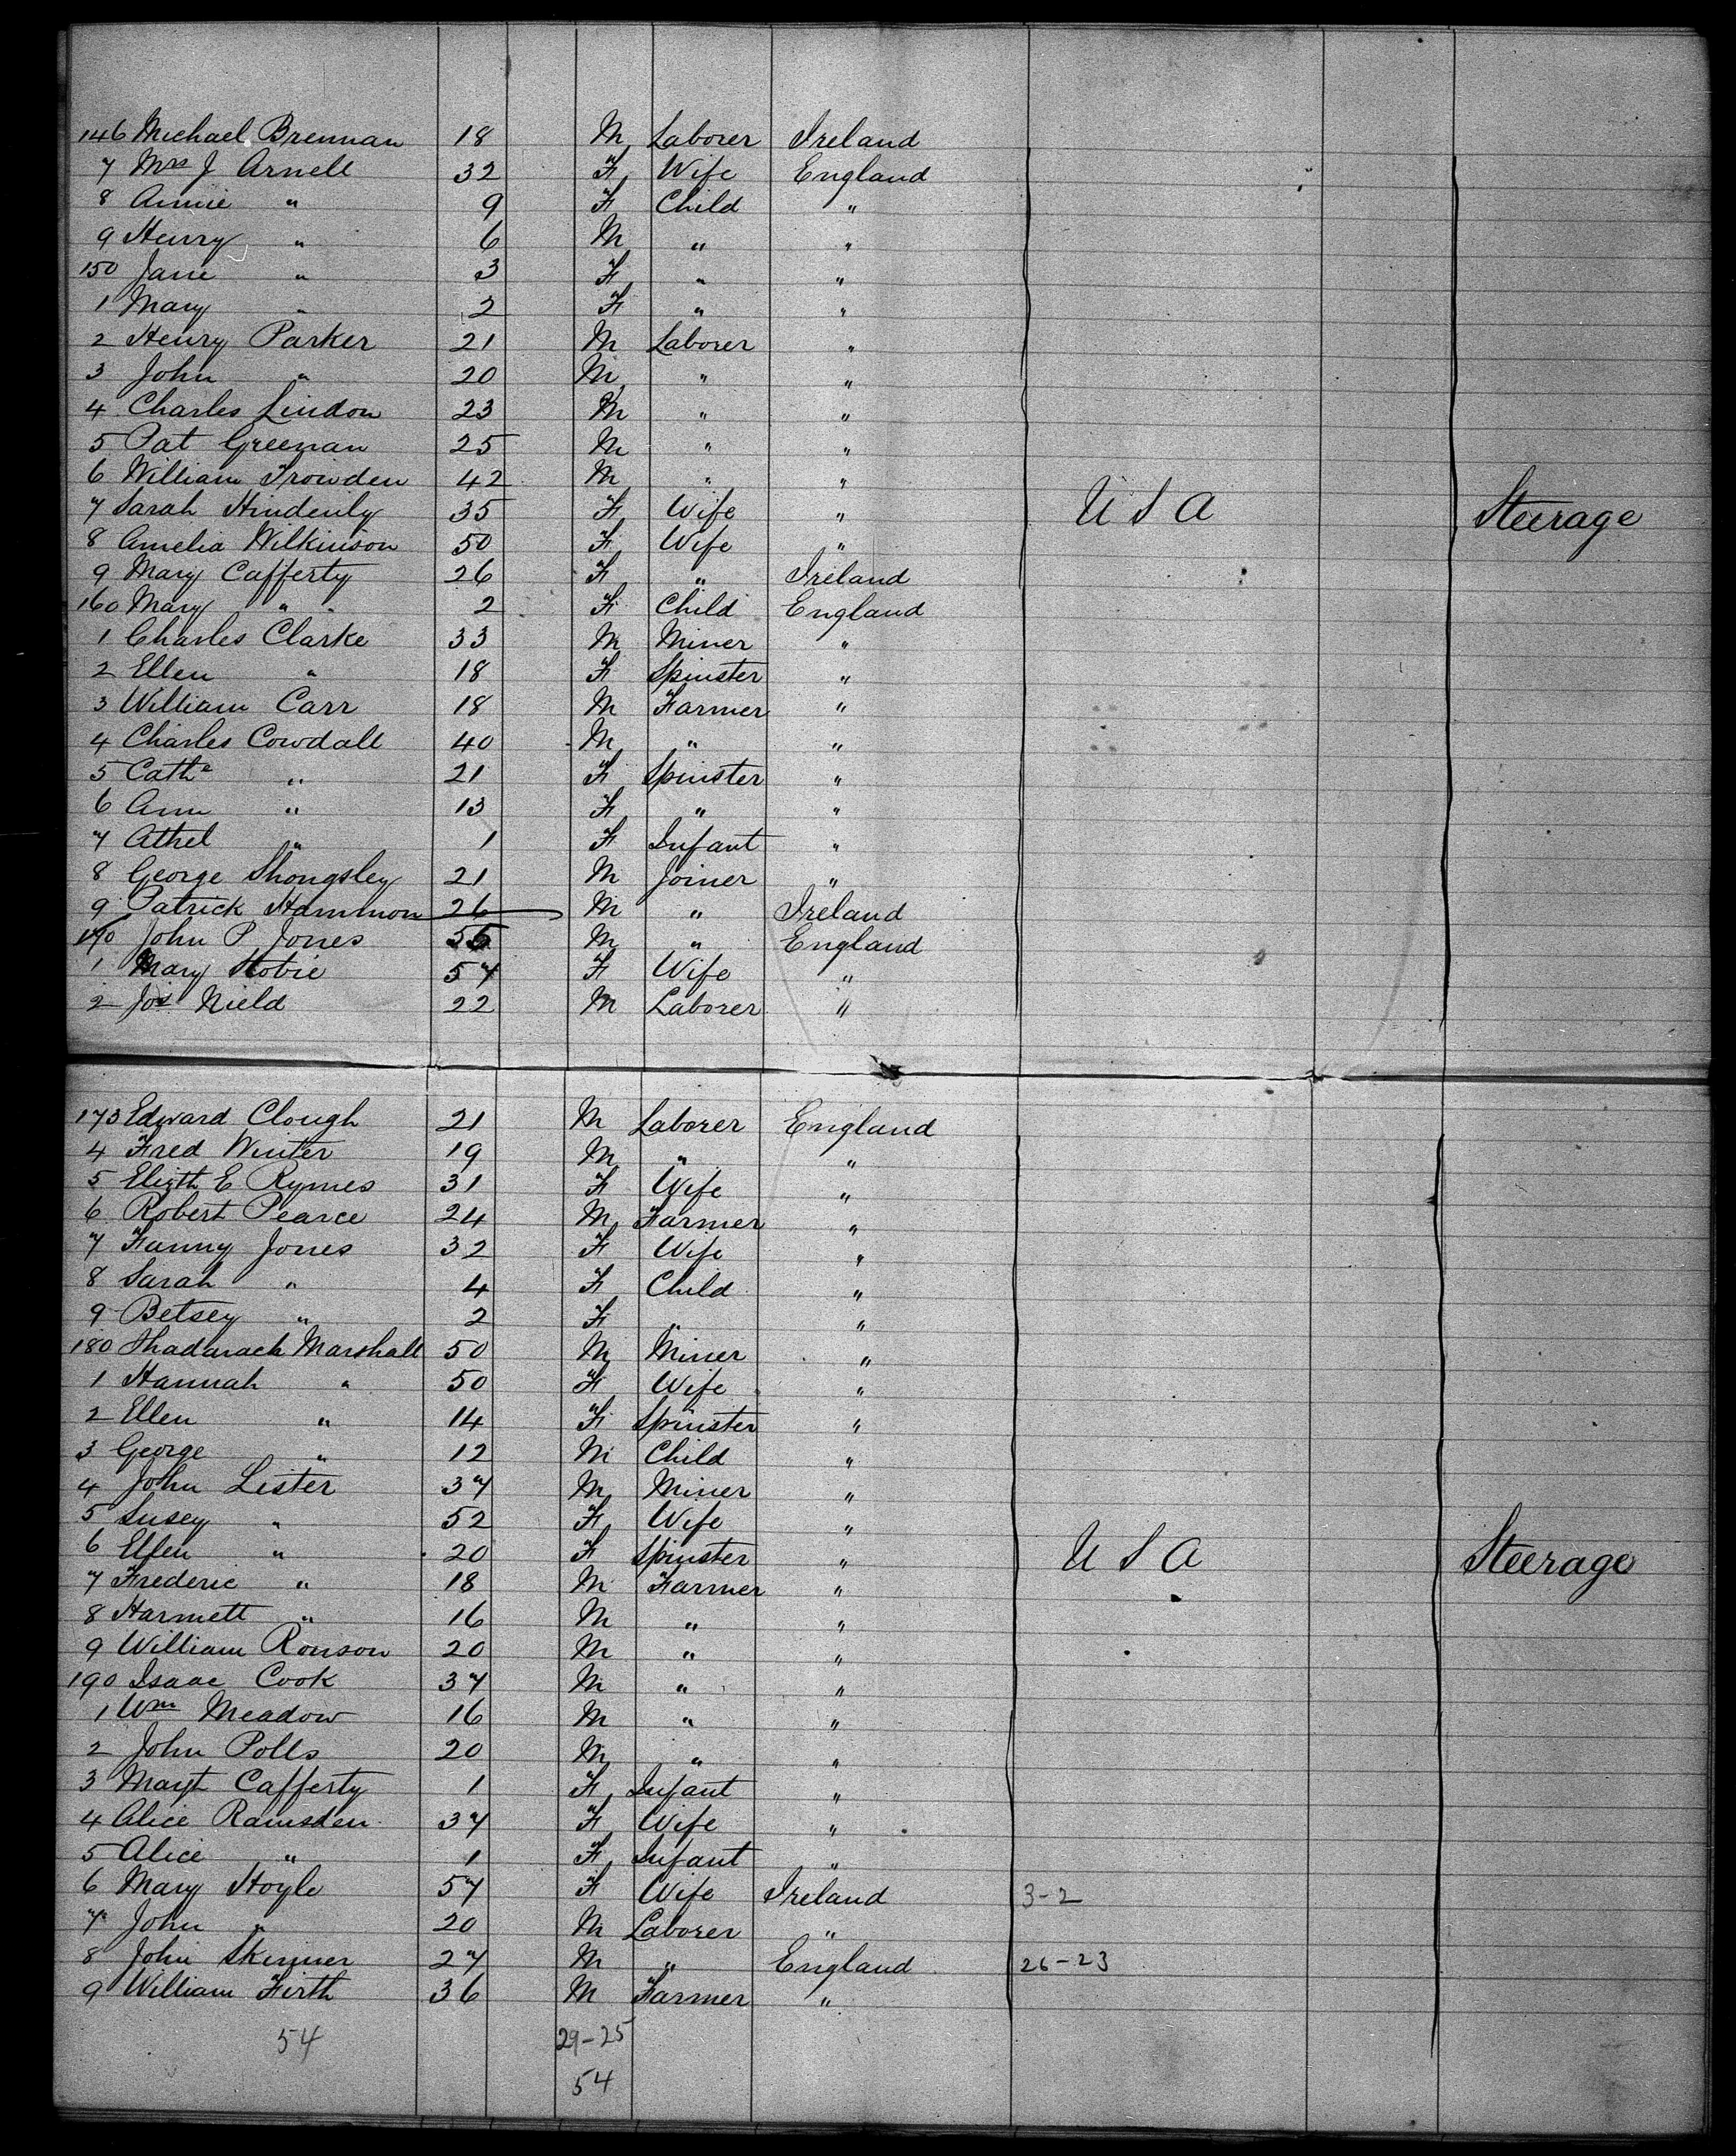 146 Michael Brennan 18 M Laborer Ireland
7 Mrs J Arnell 32 F Wife England
8 Annie " 9 F Child "
9 Henry " 6 M " "
150 Jane " 3 F " "
1 Mary " 2 F " "
2 Henry Parker 21 M Laborer "
3 John " 20 M " "
4 Charles Lindon 23 M " "
5 Pat Greenan 25 M " "
6 William Trowden 42 M " "
7 Sarah Hindenly 35 F Wife " U S A Steerage
8 Amelia Wilkinson 50 F Wife "
9 Mary Cafferty 26 F " Ireland
160 Mary " 2 F Child England
1 Charles Clarke 33 M Miner "
2 Ellen " 18 F Spinster "
3 William Carr 18 M Farmer "
4 Charles Cowdall 40 M " "
5 Cathe " 21 F Spinster "
6 Ann " 13 F " "
7 Athel " 1 F Infant "
8 George Shongsley 21 M Joiner "
9 Patrick Hammon 26 M " Ireland
170 John P Jones M " England
1 Mary Hobie 57 F Wife "
2 Jos Nield 22 M Laborer "
173 Edward Clough 21 M Laborer England
4 Fred Winter 19 M " "
5 Elizth E Rymes 31 F Wife "
6 Robert Pearce 24 M Farmer "
7 Fanny Jones 32 F Wife "
8 Sarah " 4 F Child "
9 Betsey " 2 F " "
180 Shadarach Marshall 50 M Miner "
1 Hannah " 50 F Wife "
2 Ellen " 14 F Spinster "
3 George " 12 M Child "
4 John Lister 37 M Miner "
5 Susey " 52 F Wife "
6 Ellen " 20 F Spinster " U S A Steerage
7 Frederic " 18 M Farmer "
8 Harmett " 16 M " "
9 William Ronson 20 M " "
190 Isaac Cook 37 M " "
1 Wm Meadow 16 M " "
2 John Polls 20 M " "
3 Magt Cafferty 1 F Infant "
4 Alice Ramsden 37 F Wife "
5 Alice " 1 F Infant "
6 Mary Hoyle 57 F Wife Ireland 3-2
7 John " 20 M Laborer "
8 John Skinner 27 M " England 26-23
9 William Firth 36 M Farmer "
54 29-25
54